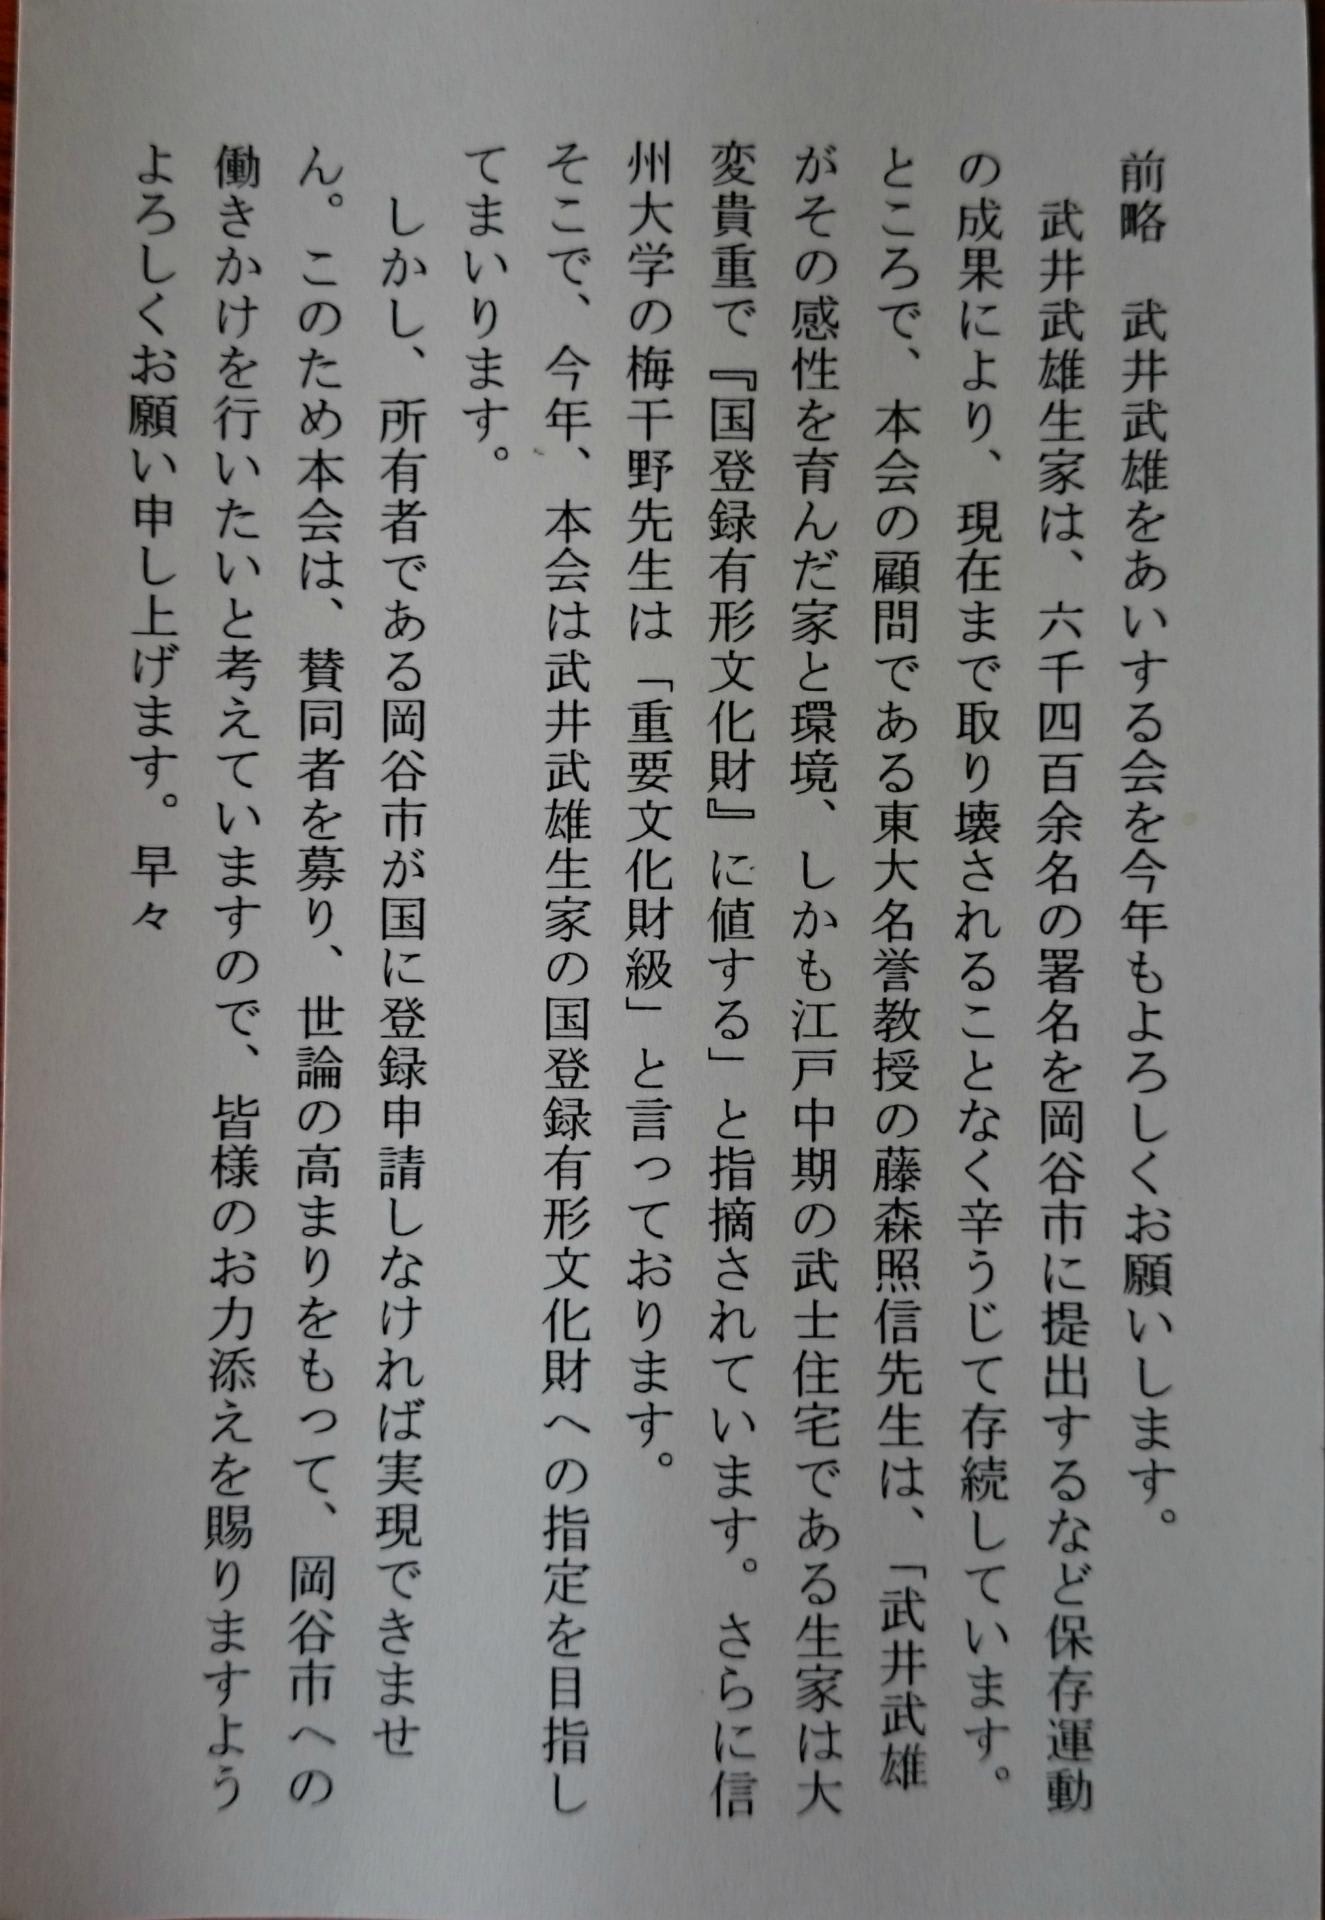 前略　武井武雄をあいする会を今年もよろしくお願いします。
　武井武雄生家は、六千四百余名の署名を岡谷市に提出するなど保存運動
の成果により、現在まで取り壊されることなく辛うじて存続しています。
ところで、本会の顧問である東大名誉教授の藤森照信先生は、「武井武雄
がその感性を育んだ家と環境、しかも江戸中期の武士住宅である生家は大
変貴重で『国登録有形文化財』に値する」と指摘されています。さらに信
州大学の梅干野先生は「重要文化財級」と言っております。
そこで、今年、本会は武井武雄生家の国登録有形文化財への指定を目指し
てまいります。
　しかし、所有者である岡谷市が国に登録申請しなければ実現できませ
ん。このため本会は、賛同者を募り、世論の高まりをもって、岡谷市への
働きかけを行いたいと考えていますので、皆様のお力添えを賜りますよう
よろしくお願い申し上げます。早々